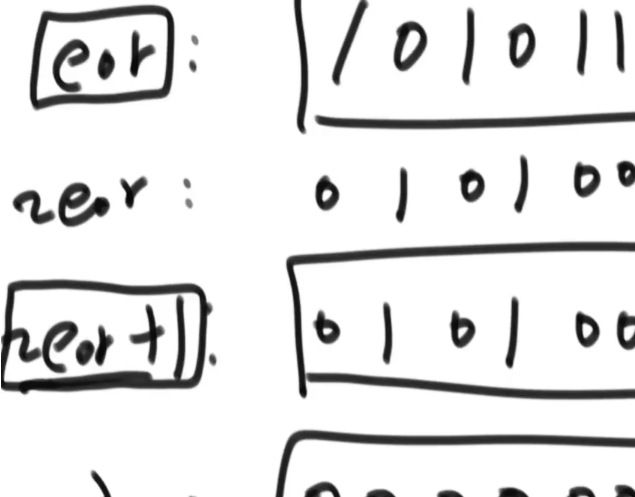 eor: 1 0 1 0 1 1
~eor: 0 1 0 1 0 0
~eor+1: 0 1 0 1 0 0